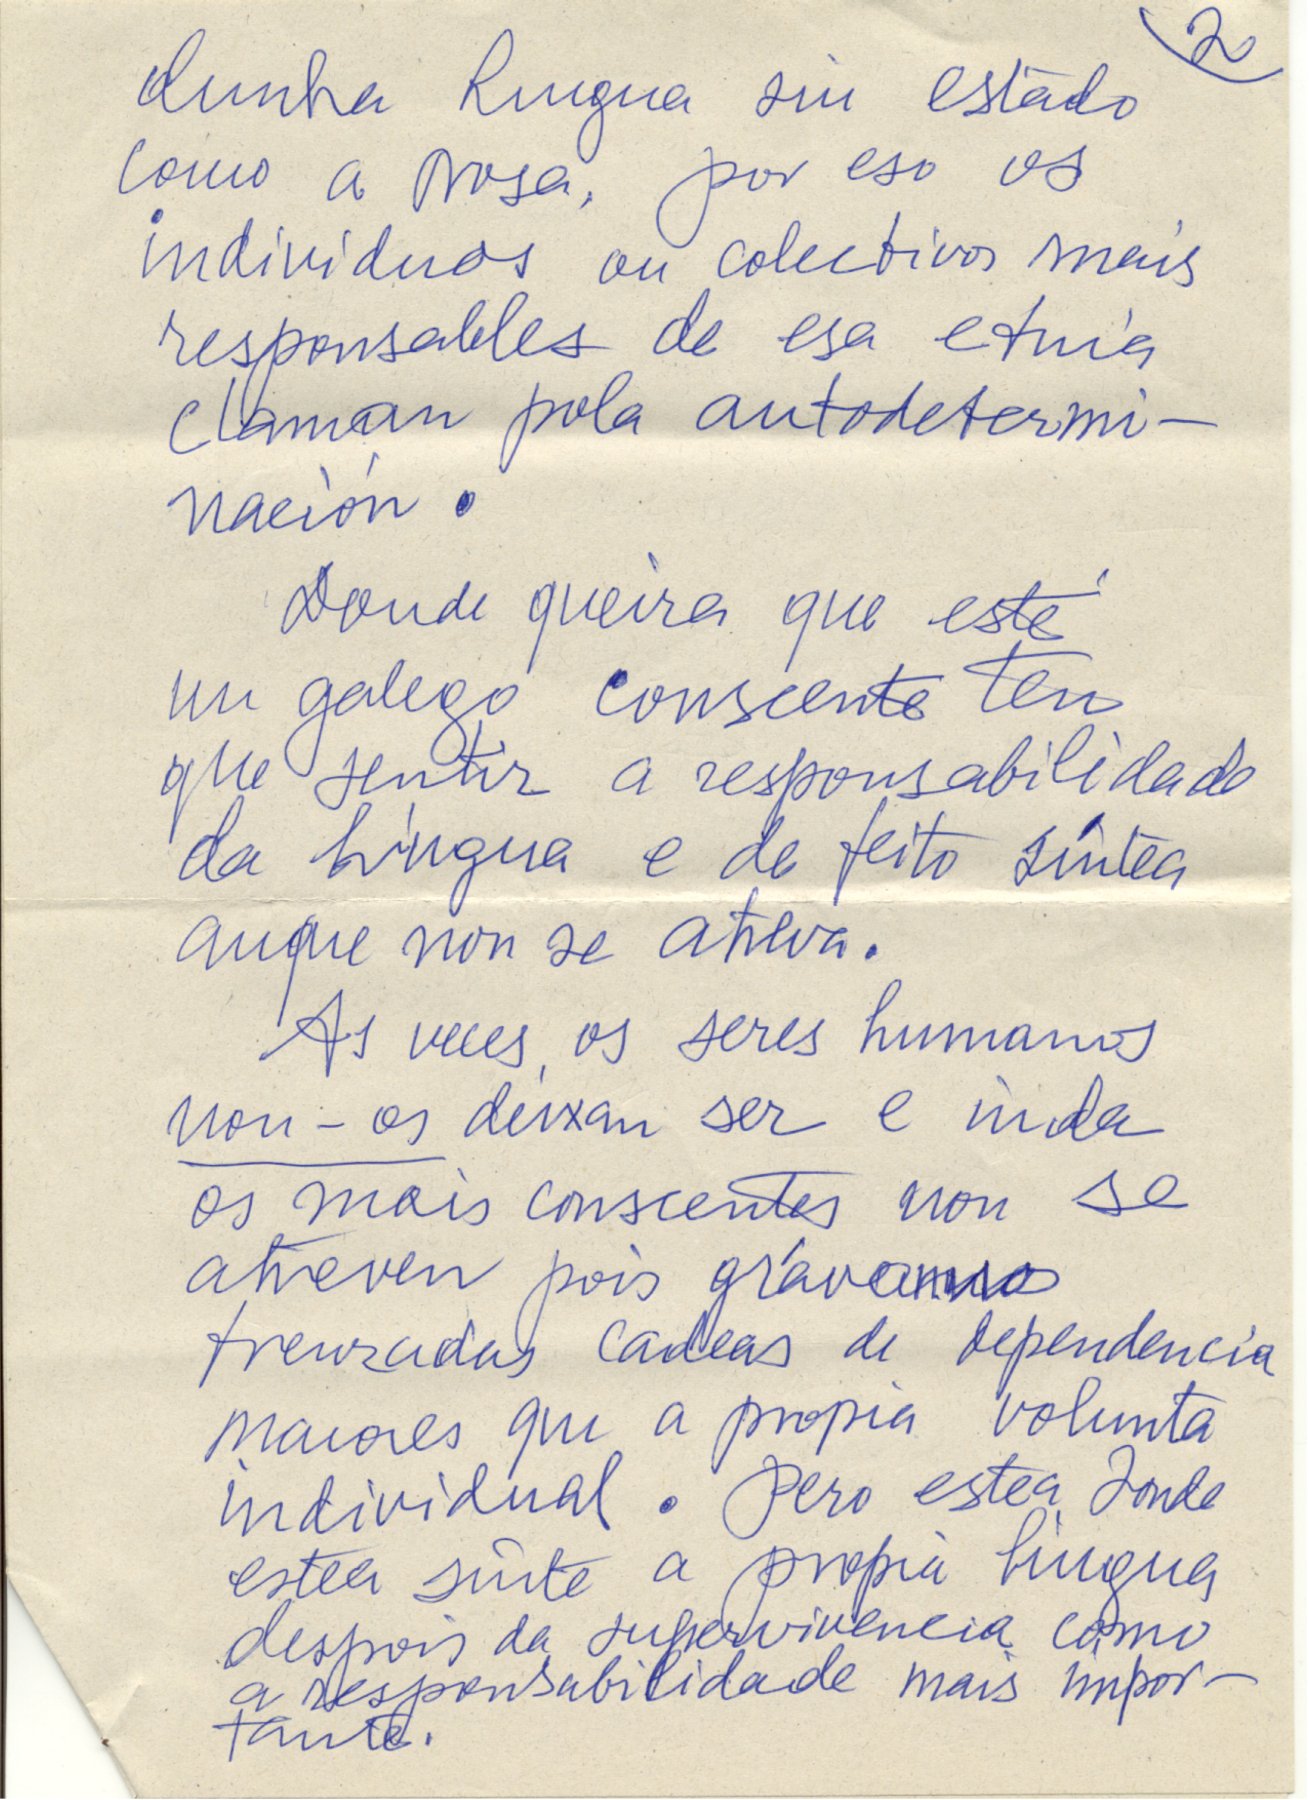 2
dunha lingua sin estado
como a nosa, por eso os
individuos ou colectivos mais
responsables de esa etnia
claman pola autodetermi-
nación.
Donde queira que esté
un galego conscente ten
que sentir a responsabilidade
da lingua e de feito síntea
auque non se atreva.
As veces, os seres humanos
non-os deixan ser e inda
os mais conscentes non se
atreven pois
trenzadas cadeas de dependencia
maiores que a propia volunta
individual. Pero estea donde
estea sinte a propia lingua
despois da supervivencia como
a responsabilidade mais impor-
tante.